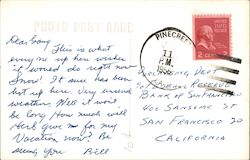 PHOTO POST CARD
Dear Gang
This is what
everyone up here wishes
it would do right now
Snow! It sure has been
hot up here. Very unusual
weather. Well it won't
be long. How much will
Herb give me for my
Vacation now? Be
seeing you Bill
PINECREST
11
P.M.
2 CENTS 2
Purchasing Dept
Federal Reserve
Bank of San Francisco
400 Sansome St
San Francisco 20
California